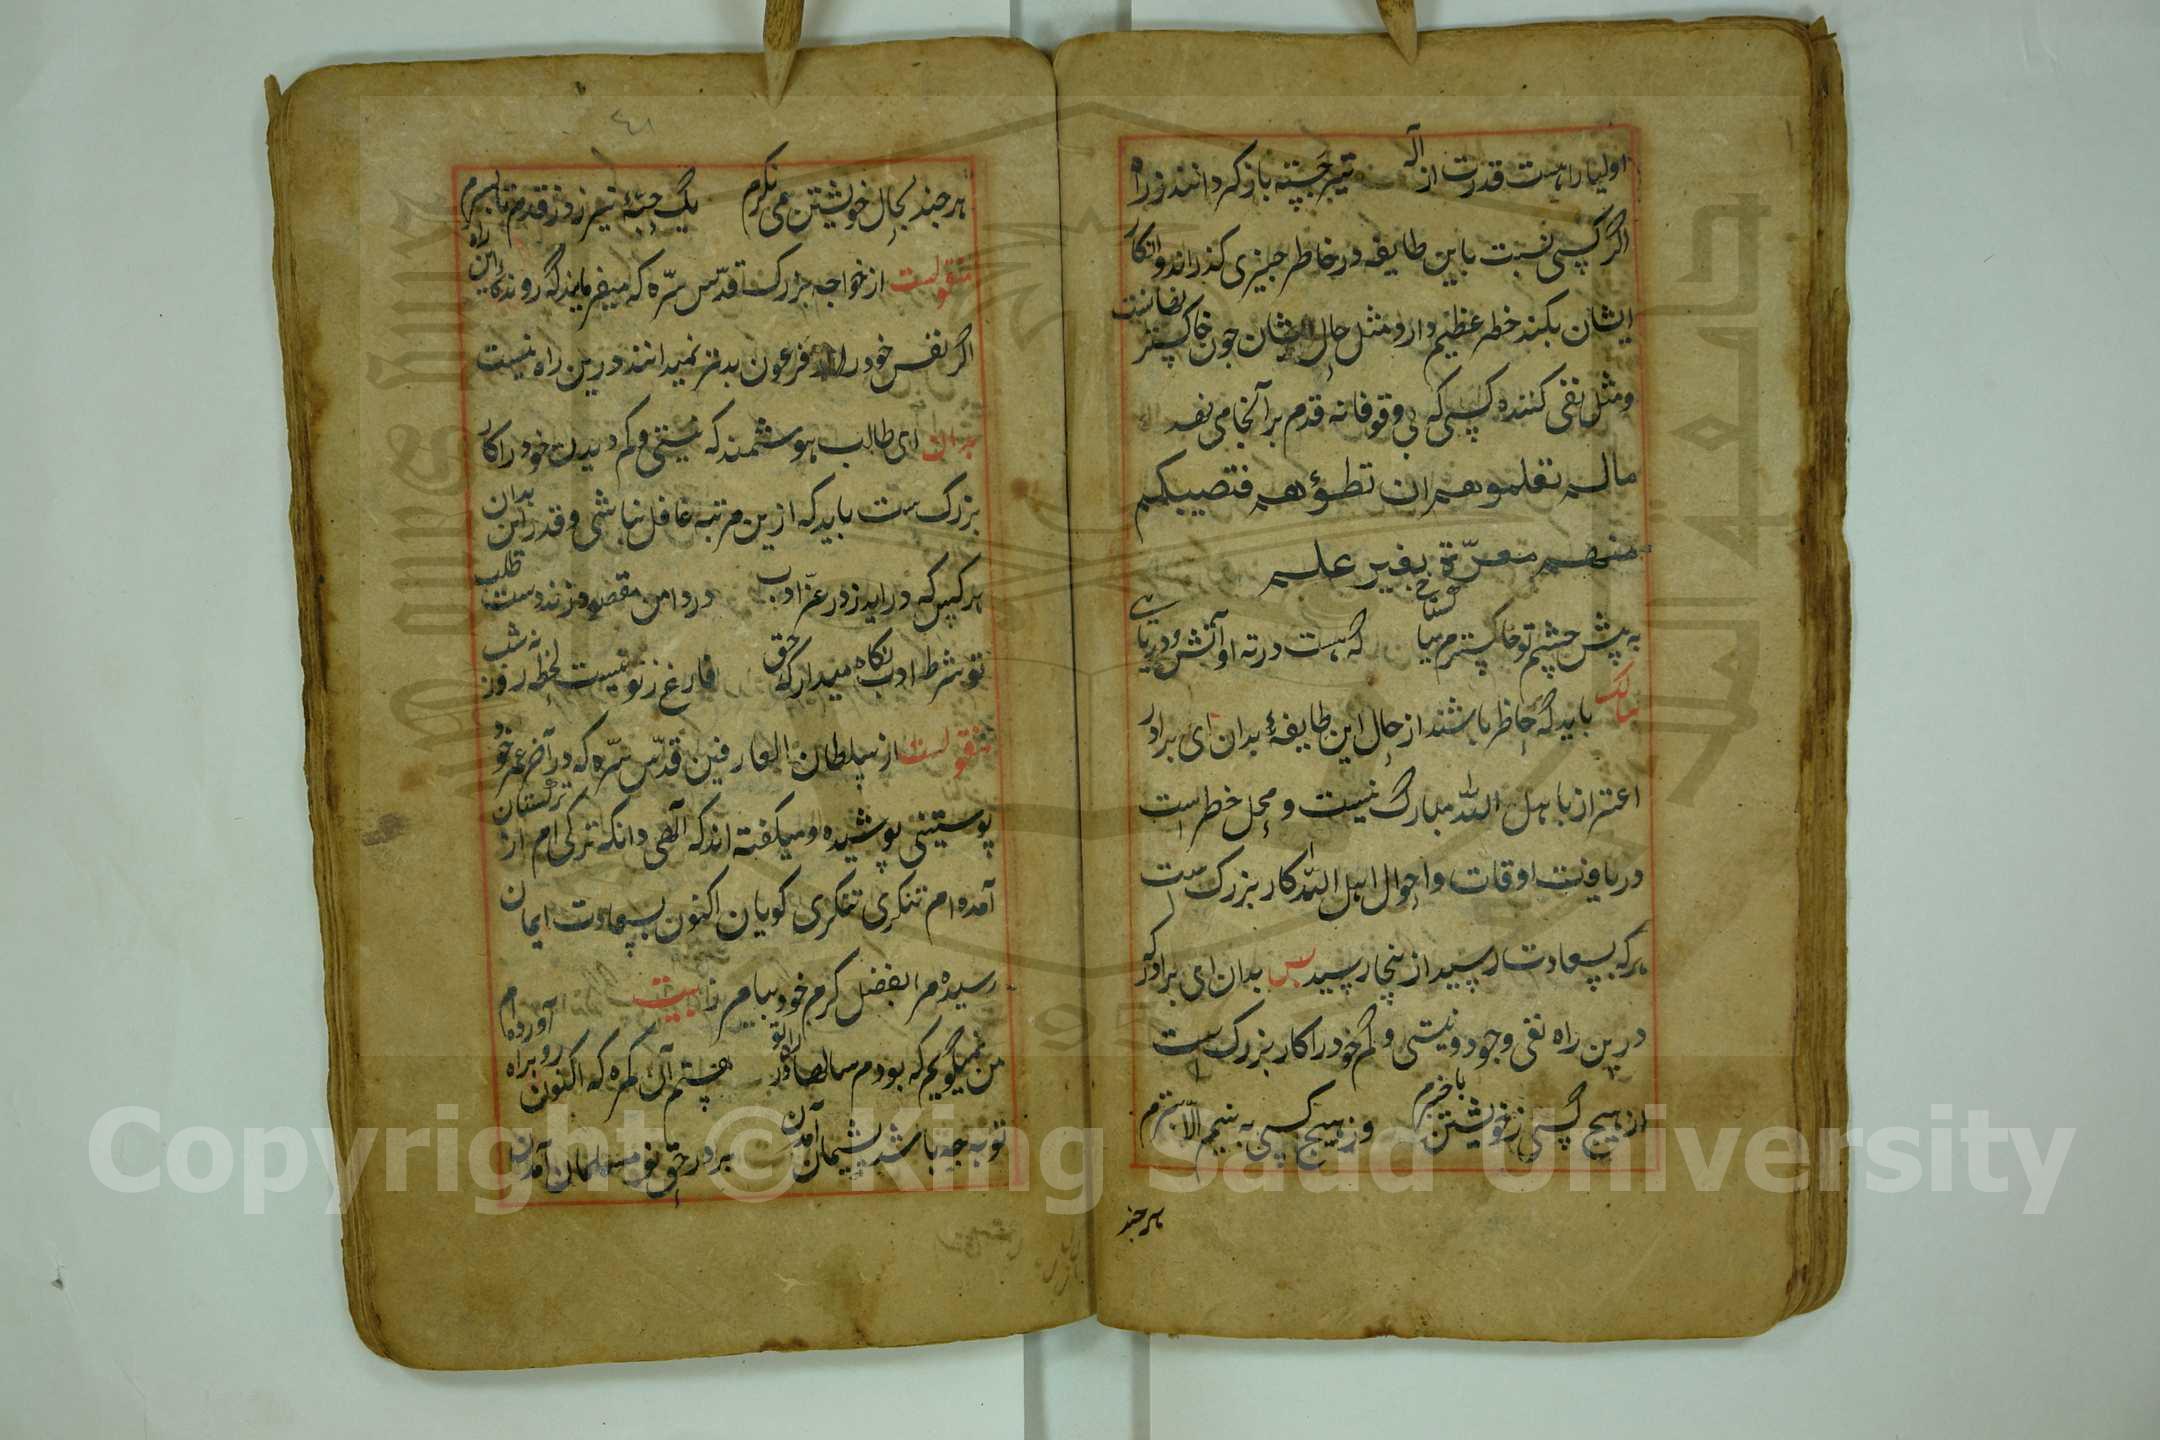 اولیا را هست قدرت از اله تیر جسته باز گرداند ز راه
اگر کسی نسبت باین طایفه در خاطر چیزی گذراند و انکار
ایشان بکند خطر عظیم دارد مثل حال ایشان چون خاکستر
و مثل نفی کننده کسی که بی وقوفانه قدم بر آنجا می نهد
مالم تعلموهم ان تطؤهم فتصیبکم
منهم معرّة بغیر علم
به پیش چشم تو خاکسترم میا گستاخ که هست در ته او آتش و دریایی
سالک باید که حاظر باشند از حال این طایفهٔ بدان ای برادر
اعتراز با هل الله مبارک نیست و محل خطر است
دریافت اوقات و احوال اهل الله کار بزرک ست
هر که بسعادت رسید از ینجا رسید پس بدان ای برادر که
درین راه نفی وجود و نیستی و کم خود را کار بزرک ست
از هیچ کسی ز خویشتن با خبرم وز هیچ کسی به نیم الّا بترم
هر چند
٤١
هر چند بحال خویشتن می نگرم یک حبّهٔ نیرزد ز قدم تا بسرم
منقولست از خواجه بزرک قدّس سّره که میفرمایند که روندکان این راه
اگر نفس خود را از فرعون بدتر نمیدانند درین راه نیست
بدان ای طالب هوشمند که نیستی و کم دیدن خود را کار
بزرک ست باید که ازین مرتبه غافل نباشی و قدر این بدان
هر کس که در اید ز در عزّ ادب در دامن مقصود زند دست طلب
تو شرط ادب نکاه میدار که حق فارغ ز تو نیست لحظه روز نه شب
منقولست از سلطان العارفین قدّس سّره که در آخر عمر خود
پوستینی پوشیده و میکفته اند که الهی دانکه ترکی ام از ترکستان
آمده ام تنکری تنکری کویان اکنون بسعادت ایمان
رسیده مرا بفضل کرم خود بیامرز بیت
من نمیگویم که بودم سالها در راه تو هستم آن کمره که اکنون رو براه آورده ام
توبه چه باشد پشیمان آمدن بر در حق نو مسلمان آمدن
Copyright © King Saud University